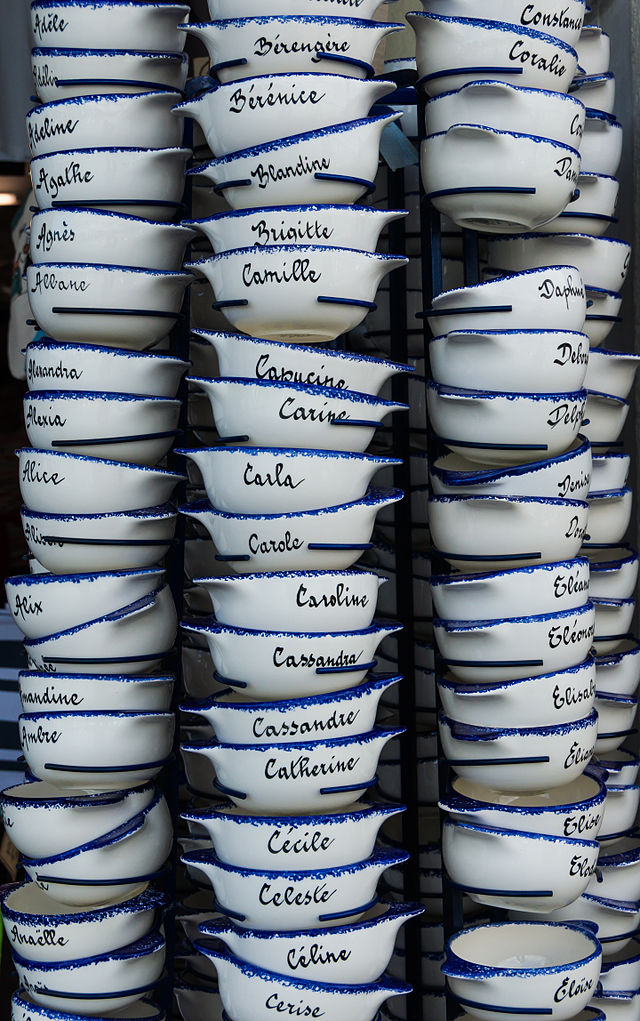 Adèle
Adeline
Agathe
Agnès
Albane
Alexandra
Alexia
Alice
Alison
Alix
Amandine
Ambre
Anaëlle
Bérengère
Bérénice
Blandine
Brigitte
Camille
Capucine
Carine
Carla
Carole
Caroline
Cassandra
Cassandre
Catherine
Cécile
Celeste
Céline
Cerise
Constance
Coralie
Co
Dan
Daphn
Debo
Delph
Denis
Do
Eléan
Eléonor
Elisab
Elian
Elise
Elod
Eloïse